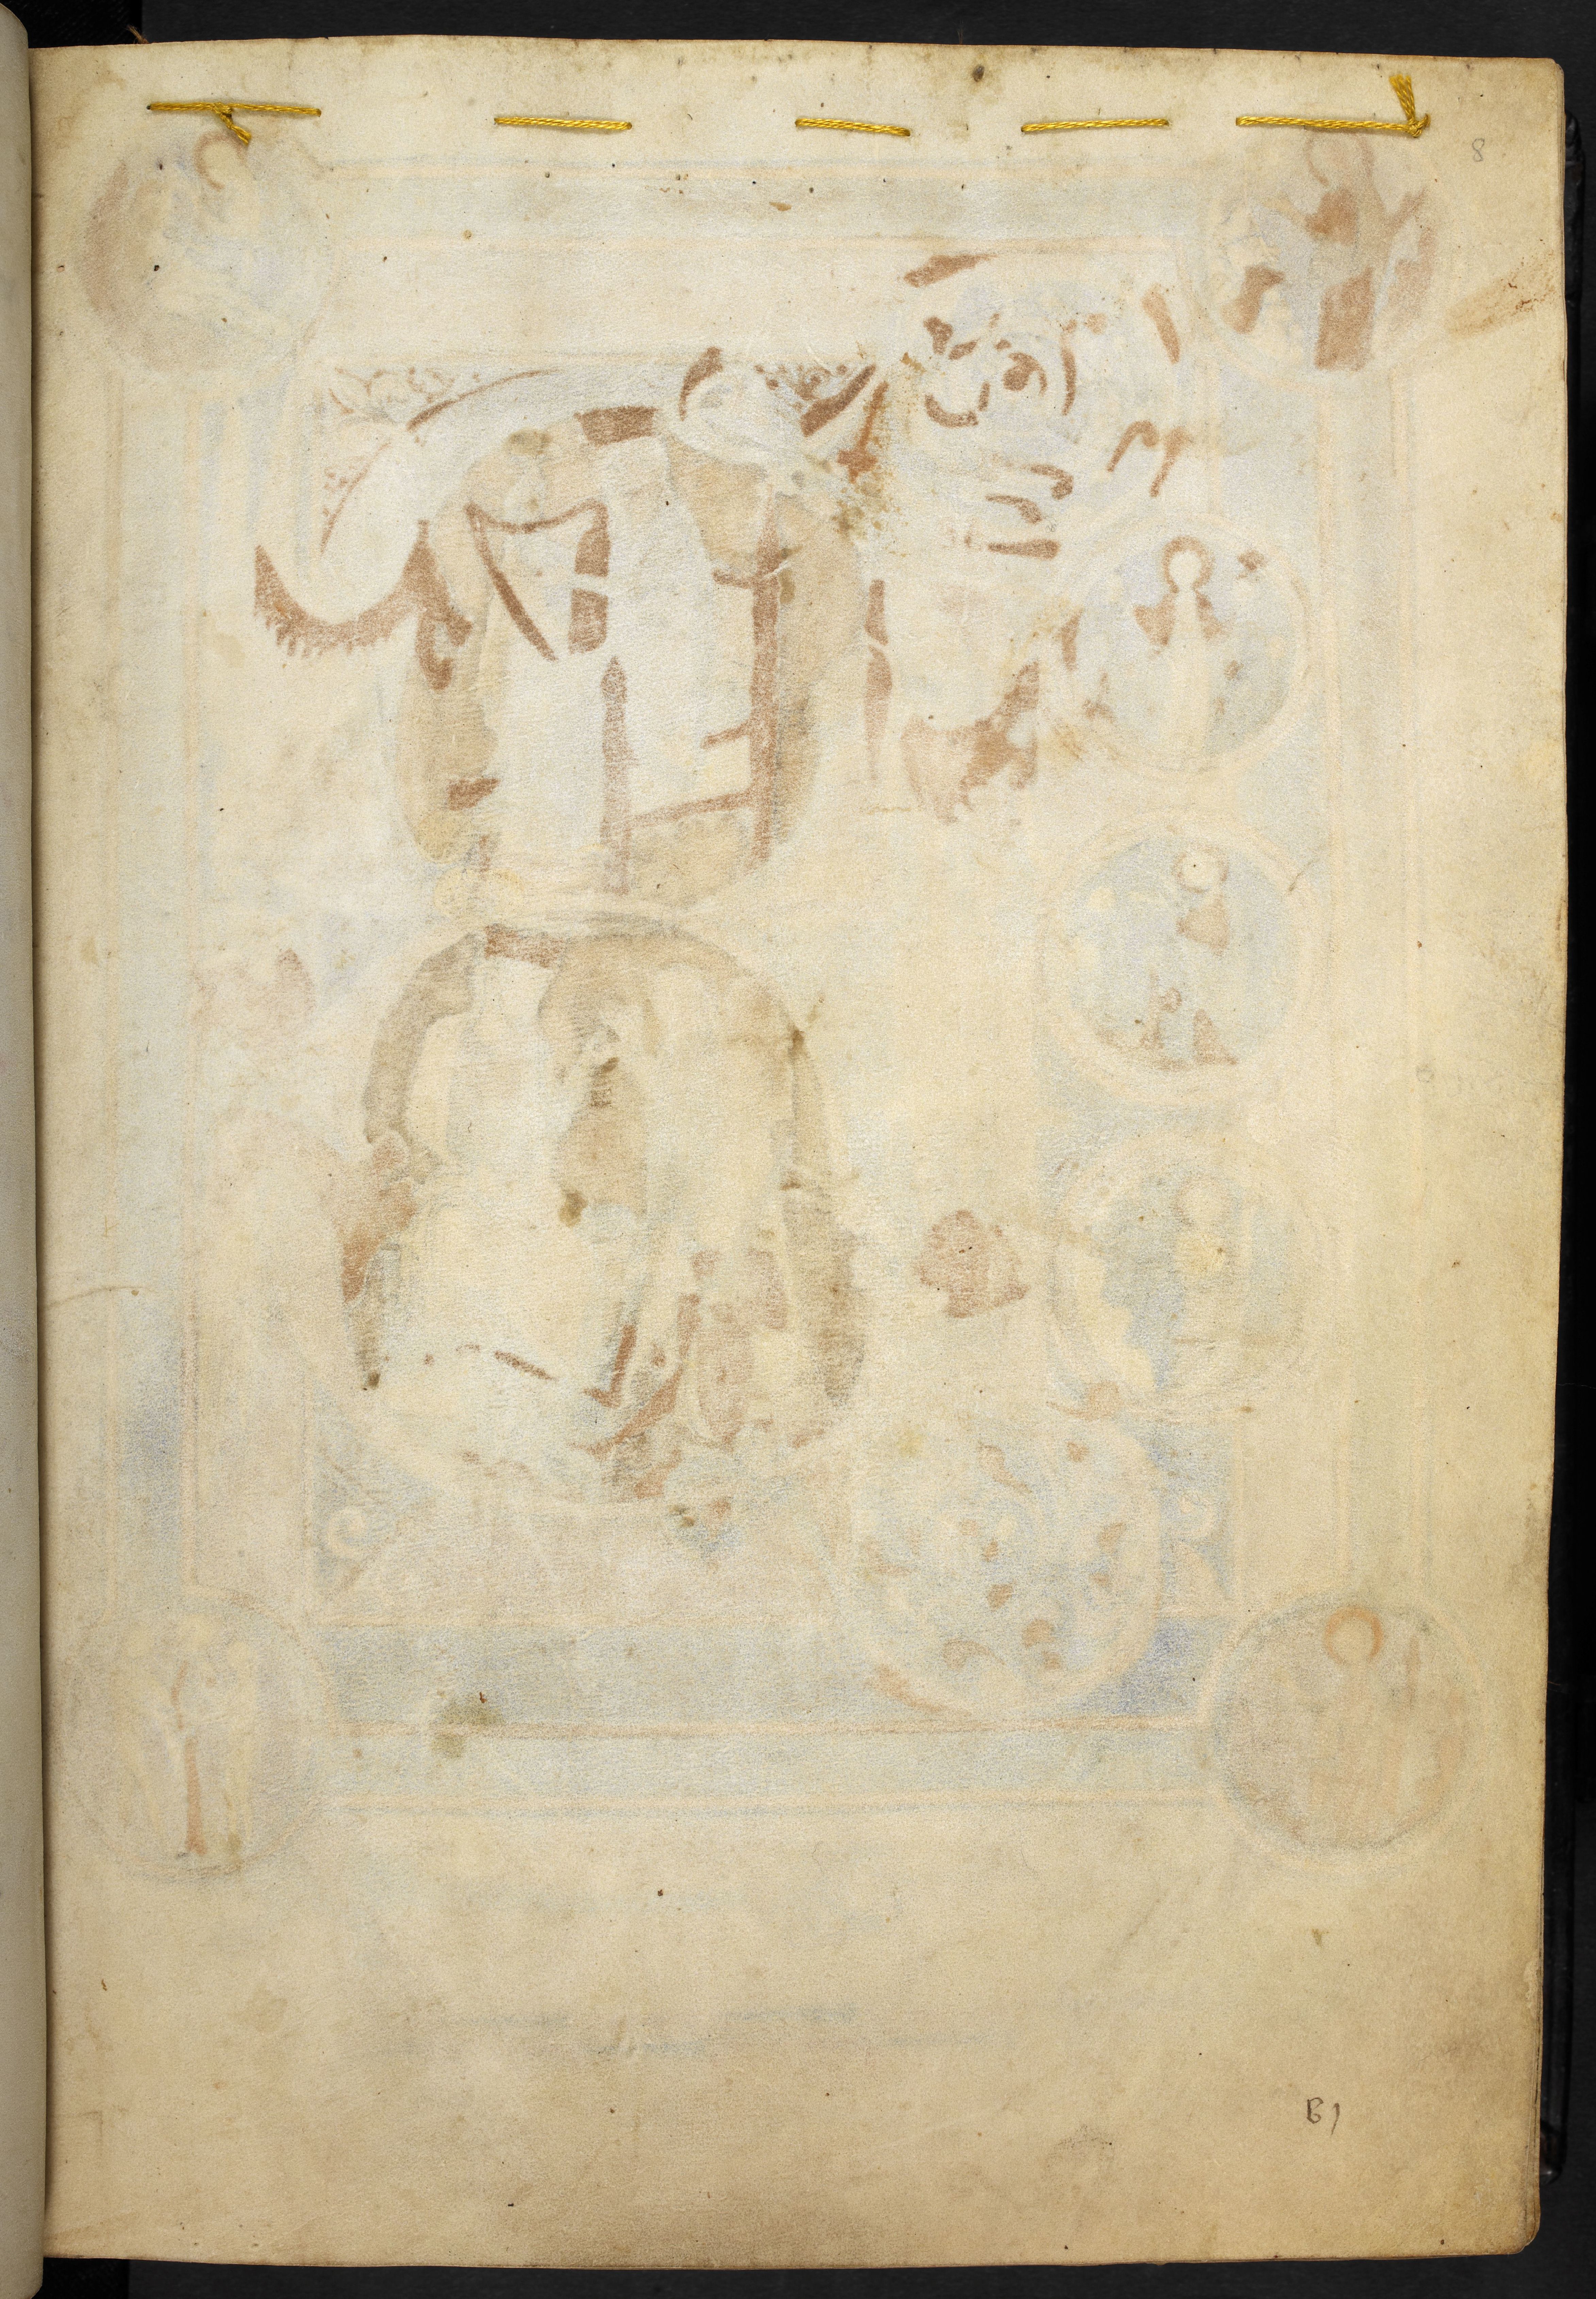 8
B1